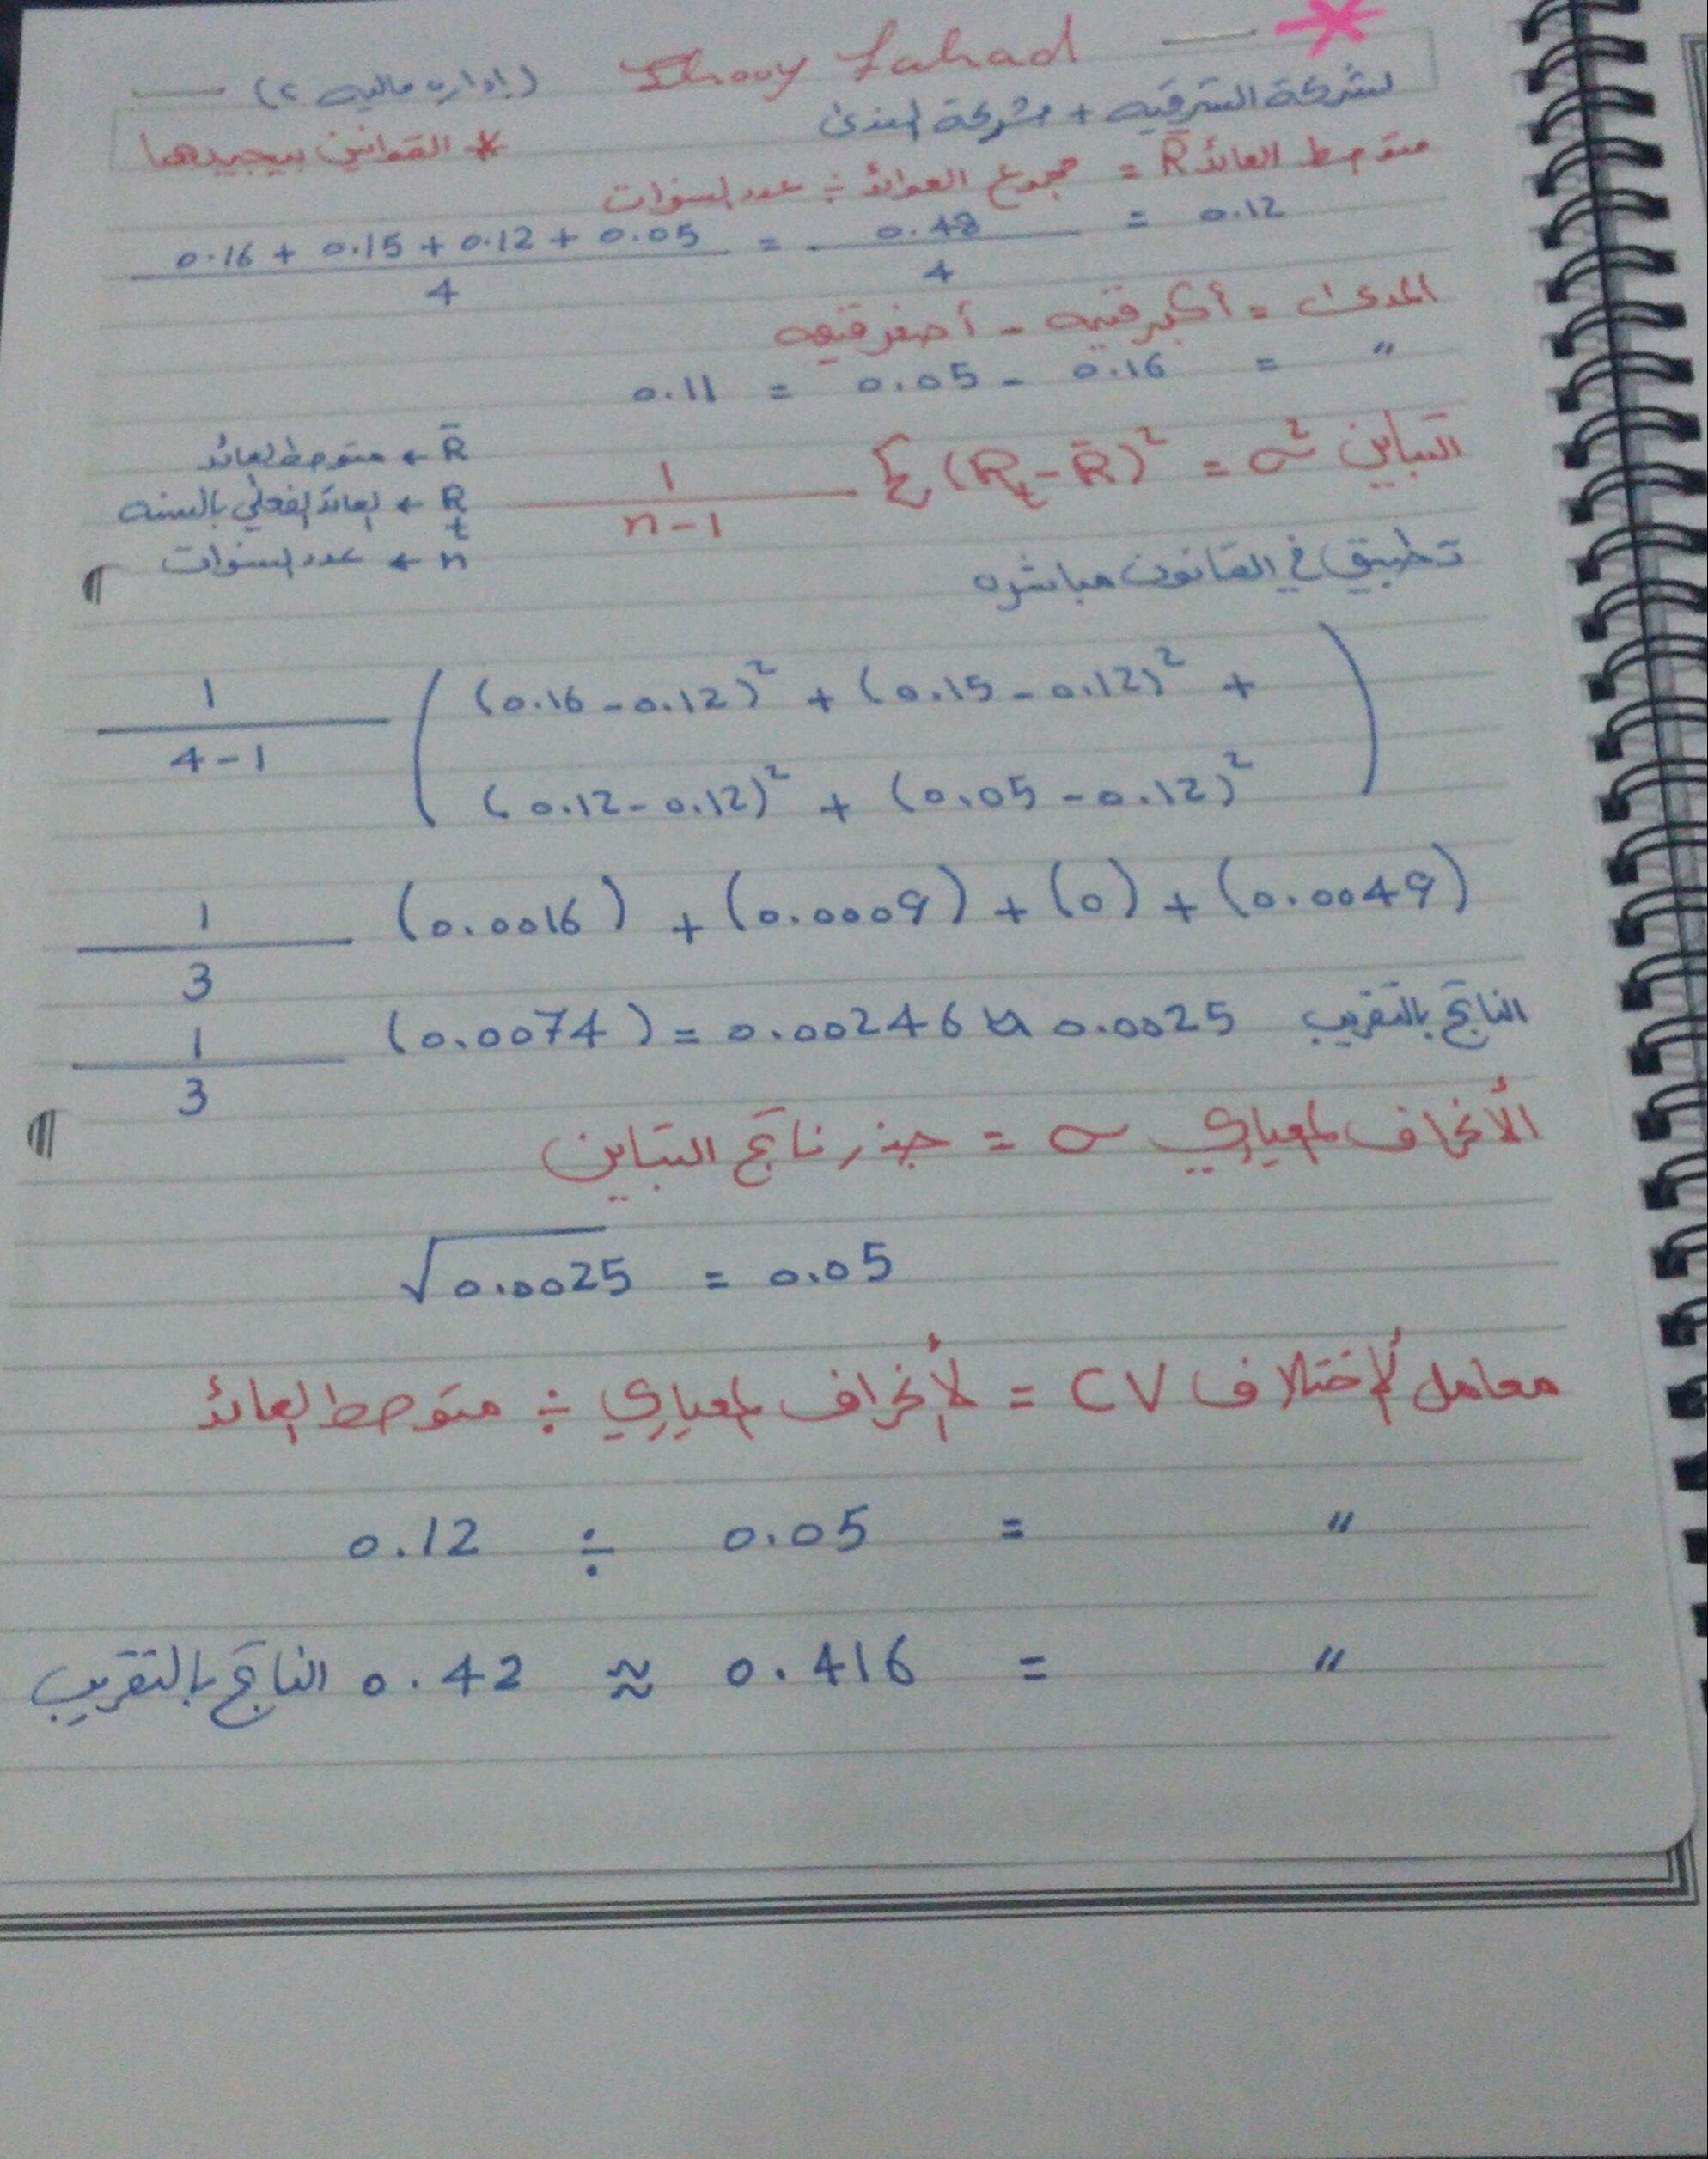 Shouy Lahad
(إداره ماليه ٢)
لشركة الشرقيه + شركة المندى
* القوانين بيجيبها
متوسط العائد R̄ = مجموع العوائد ÷ عدد السنوات
0.16 + 0.15 + 0.12 + 0.05 / 4 = 0.48 / 4 = 0.12
المدى = أكبر قيمه - أصغر قيمه
" = 0.16 - 0.05 = 0.11
التباين σ² = Σ (Rₜ - R̄)² 1 / n-1
R̄ ← متوسط العائد
Rₜ ← العائد الفعلي بالسنه
n ← عدد السنوات
تطبيق في القانون مباشره
1 / 4-1 ( (0.16 - 0.12)² + (0.15 - 0.12)² +
(0.12 - 0.12)² + (0.05 - 0.12)² )
1 / 3 (0.0016) + (0.0009) + (0) + (0.0049)
1 / 3 (0.0074) = 0.00246 ≈ 0.0025 الناتج بالتقريب
الأنحراف المعياري σ = جذر ناتج التباين
√0.0025 = 0.05
معامل الإختلاف CV = الأنحراف المعياري ÷ متوسط العائد
" = 0.05 ÷ 0.12
" = 0.416 ≈ 0.42 الناتج بالتقريب